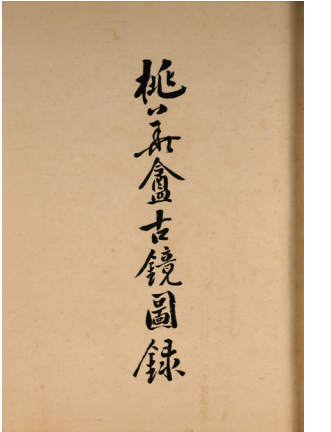 桃華盦古鏡圖録